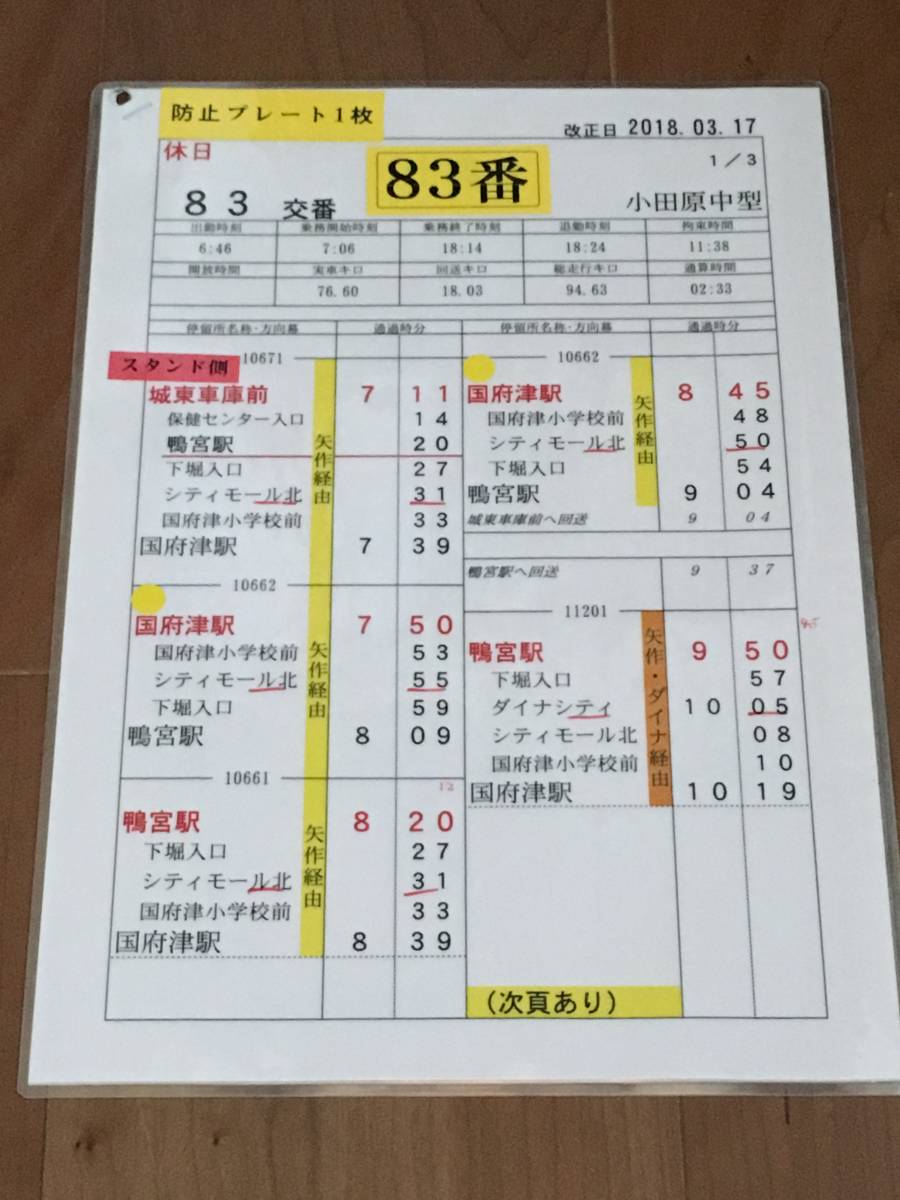 防止プレート1枚
改正日 2018.03.17
休日
1/3
83 交番
83番
小田原中型
出勤時刻 乗務開始時刻 乗務終了時刻 退勤時刻 拘束時間
6:46 7:06 18:14 18:24 11:38
開放時間 実車キロ 回送キロ 総走行キロ 通算時間
76.60 18.03 94.63 02:33
停留所名称・方向幕 通過時分
スタンド側
10671
矢作経由
城東車庫前 7 11
保健センター入口 14
鴨宮駅 20
下堀入口 27
シティモール北 31
国府津小学校前 33
国府津駅 7 39
10662
矢作経由
国府津駅 7 50
国府津小学校前 53
シティモール北 55
下堀入口 59
鴨宮駅 8 09
10661
12
矢作経由
鴨宮駅 8 20
下堀入口 27
シティモール北 31
国府津小学校前 33
国府津駅 8 39
停留所名称・方向幕 通過時分
10662
矢作経由
国府津駅 8 45
国府津小学校前 48
シティモール北 50
下堀入口 54
鴨宮駅 9 04
城東車庫前へ回送 9 04
鴨宮駅へ回送 9 37
11201
矢作・ダイナ経由
鴨宮駅 9 50
下堀入口 57
ダイナシティ 10 05
シティモール北 08
国府津小学校前 10
国府津駅 10 19
(次頁あり)